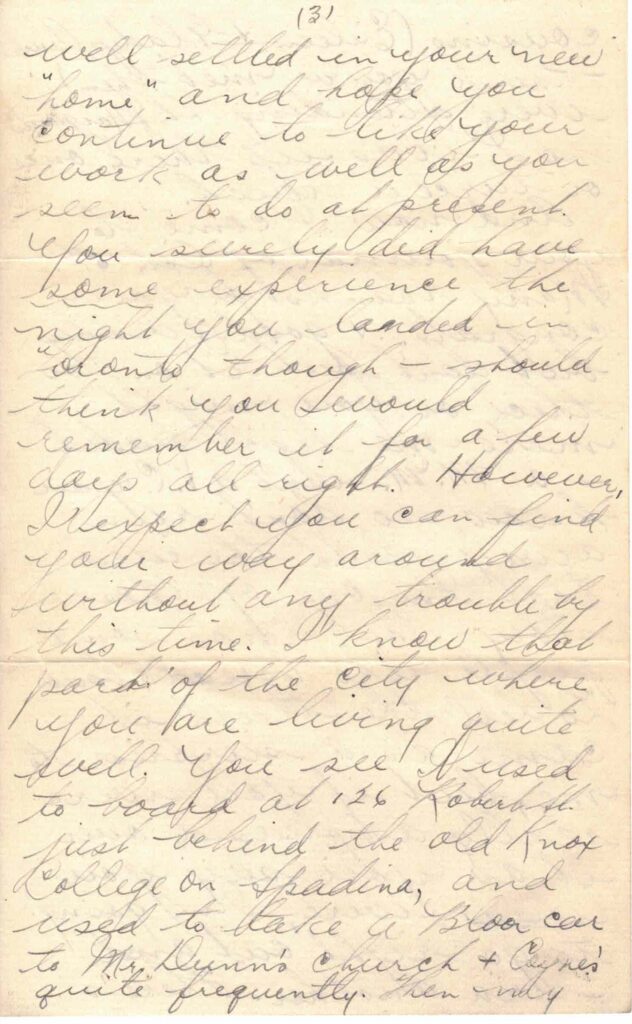 (3)
well settled in your new
"home" and hope you
continue to like your
work as well as you
seem to do at present.
You surely did have
some experience the
night you landed in
Toronto though – should
think you would
remember it for a few
days all right. However,
I expect you can find
your way around
without any trouble by
this time. I know that
part of the city where
you are living quite
well. You see I used
to board at 126 Robert St.
just behind the old Knox
College on Spadina, and
used to take a Bloor car
to Mr. Dunn's church +
quite frequently. Then my